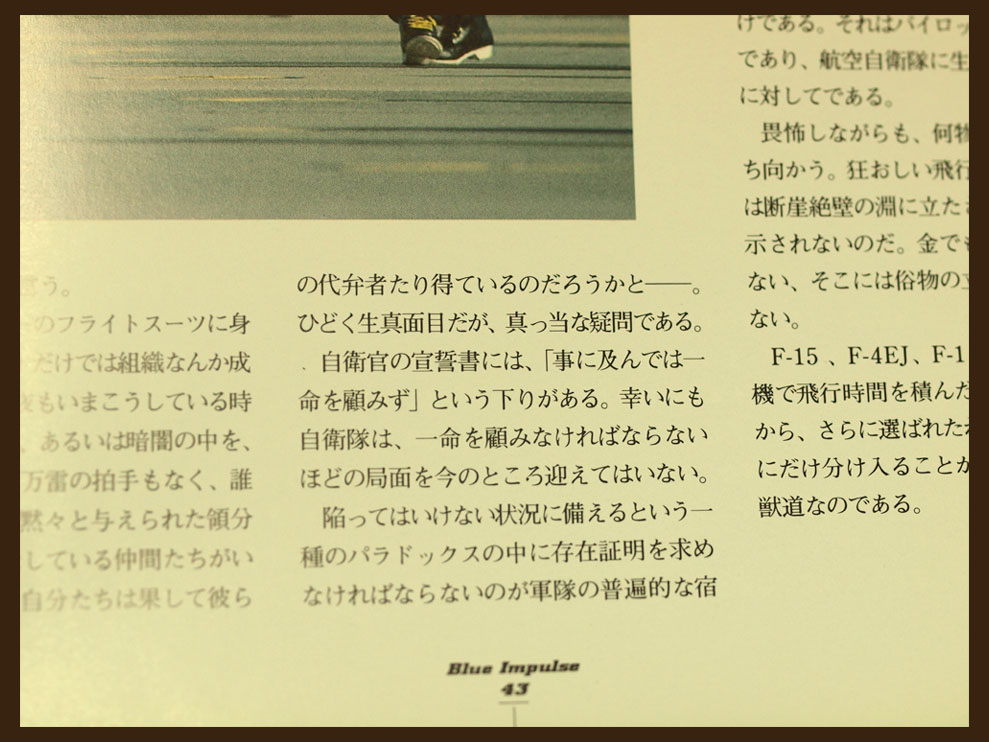 言う。
のフライトスーツに身
だけでは組織なんか成
もいまこうしている時
、あるいは暗闇の中を、
万雷の拍手もなく、誰
黙々と与えられた領分
している仲間たちがい
自分たちは果して彼ら
の代弁者たり得ているのだろうかと――。
ひどく生真面目だが、真っ当な疑問である。
自衛官の宣誓書には、「事に及んでは一
命を顧みず」という下りがある。幸いにも
自衛隊は、一命を顧みなければならない
ほどの局面を今のところ迎えてはいない。
陥ってはいけない状況に備えるという一
種のパラドックスの中に存在証明を求め
なければならないのが軍隊の普遍的な宿
けである。それはパイロッ
であり、航空自衛隊に生
に対してである。
畏怖しながらも、何物
ち向かう。狂おしい飛行
は断崖絶壁の淵に立たさ
示されないのだ。金でも
ない、そこには俗物の立
ない。
F-15 、F-4EJ、F-1
機で飛行時間を積んだ
から、さらに選ばれた
にだけ分け入ることが
獣道なのである。
Blue Impulse
43